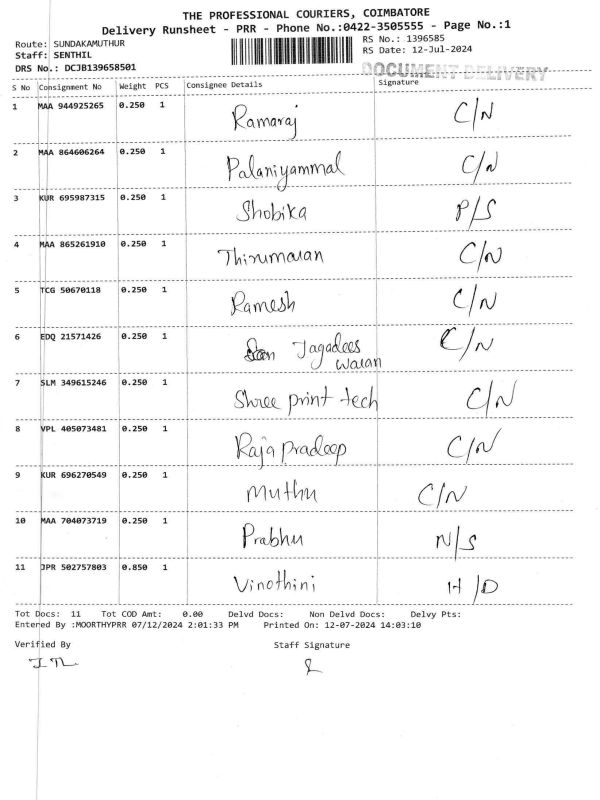 THE PROFESSIONAL COURIERS, COIMBATORE
Delivery Runsheet - PRR - Phone No.:0422-3505555 - Page No.:1
Route: SUNDAKAMUTHUR RS No.: 1396585
Staff: SENTHIL RS Date: 12-Jul-2024
DRS No.: DCJB139658501 DOCUMENT DELIVERY
S No Consignment No Weight PCS Consignee Details Signature
1 MAA 944925265 0.250 1 Ramaraj C/N
2 MAA 864606264 0.250 1 Palaniyammal C/N
3 KUR 695987315 0.250 1 Shobika P/S
4 MAA 865261910 0.250 1 Thirumaran C/N
5 TCG 50670118 0.250 1 Ramesh C/N
6 EDQ 21571426 0.250 1 Jagadees C/N
waran
7 SLM 349615246 0.250 1 Shree print tech C/N
8 VPL 405073481 0.250 1 Raja pradeep C/N
9 KUR 696270549 0.250 1 Muthu C/N
10 MAA 704073719 0.250 1 Prabhu N/S
11 JPR 502757803 0.850 1 Vinothini H/D
Tot Docs: 11 Tot COD Amt: 0.00 Delvd Docs: Non Delvd Docs: Delvy Pts:
Entered By :MOORTHYPRR 07/12/2024 2:01:33 PM Printed On: 12-07-2024 14:03:10
Verified By Staff Signature